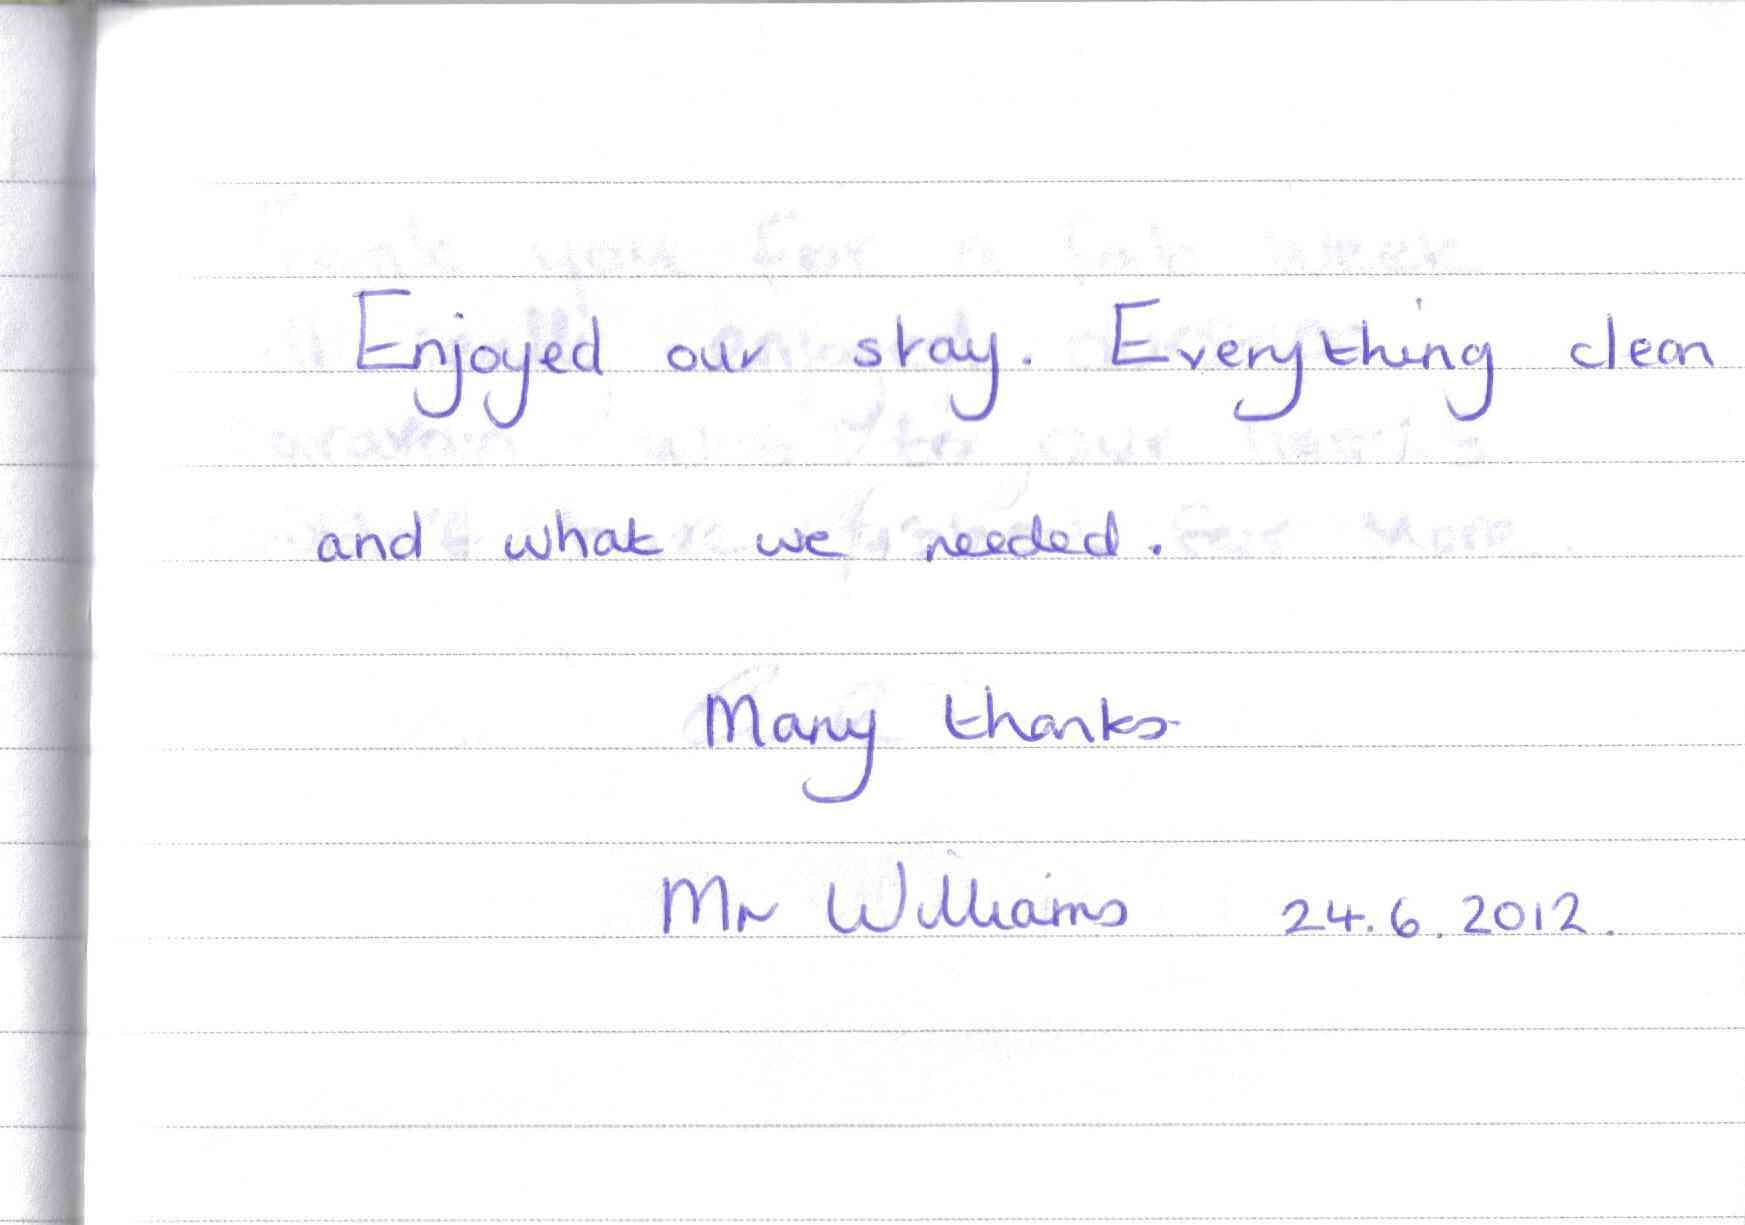 Enjoyed our stay. Everything clean
and what we needed.
Many thanks
Mr Williams 24.6.2012.